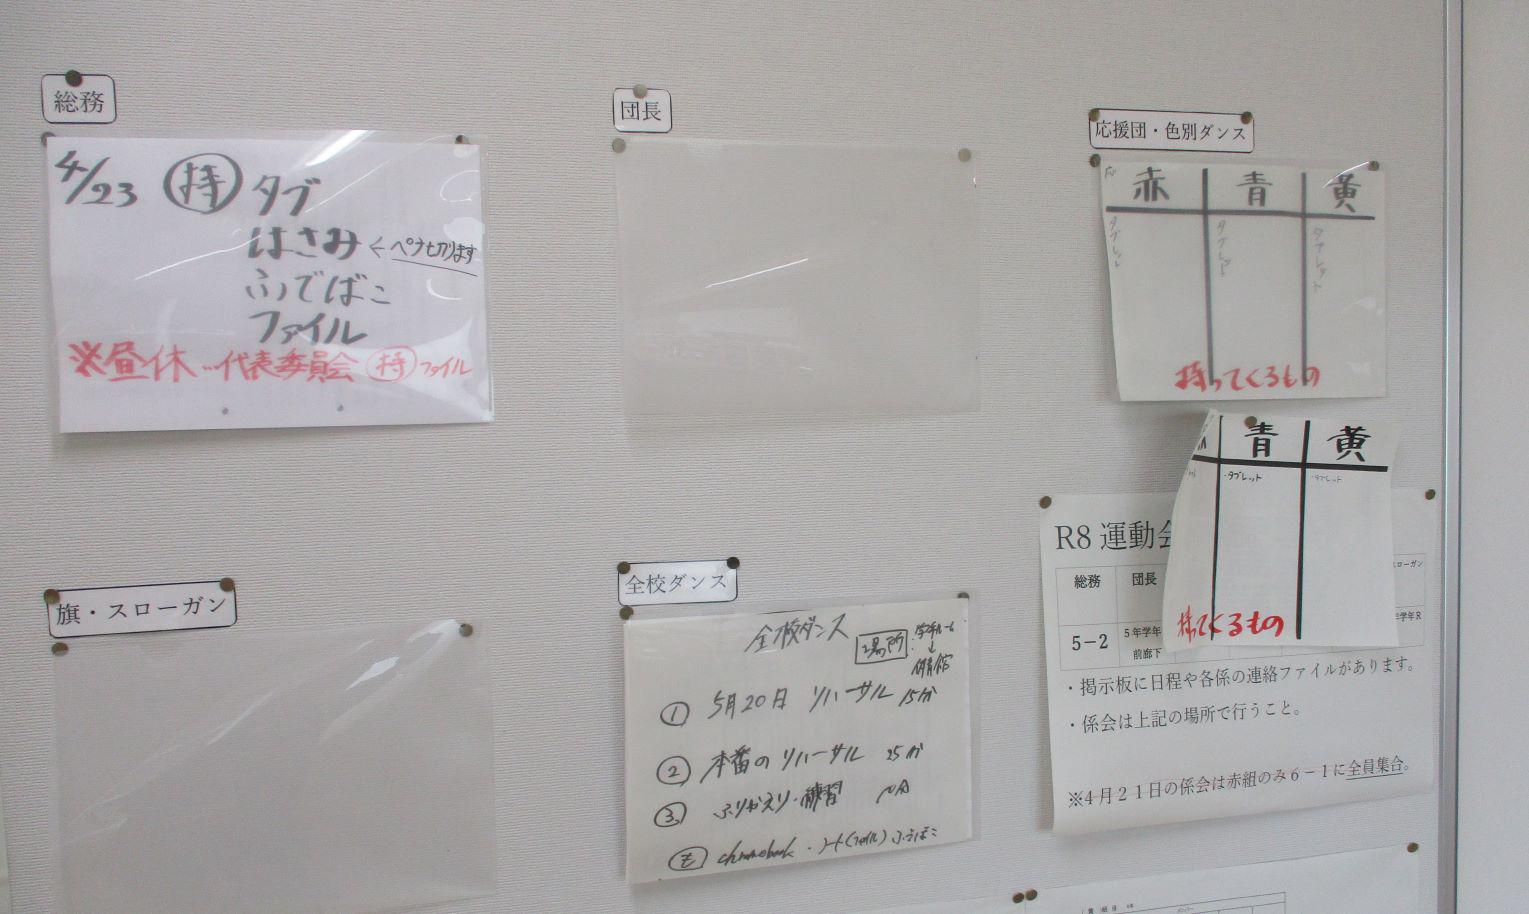 総務
4/23 持 タブ
はさみ ← ペナ切ります
ふでばこ
ファイル
※昼休…代表委員会 持 ファイル
団長
応援団・色別ダンス
赤 青 黄
タブレット タブレット タブレット
持ってくるもの
青 黄
・タブレット ・タブレット
持ってくるもの
旗・スローガン
全校ダンス
全校ダンス
場所 学年ルーム
↓
体育館
① 5月20日 リハーサル 15分
② 本番のリハーサル 25分
③ ふりかえり・練習
も chromebook ・ノート(ファイル) ふでばこ
R8 運動会
総務 団長 スローガン
5－2 5年学年 学年R
前廊下
・掲示板に日程や各係の連絡ファイルがあります。
・係会は上記の場所で行うこと。
※4月21日の係会は赤組のみ6－1に全員集合。